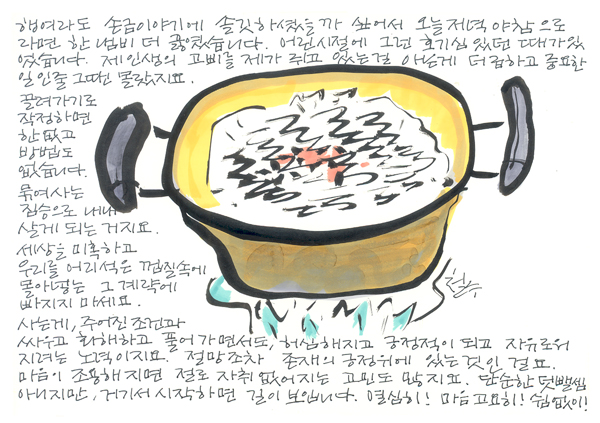 행여라도 손금이야기에 솔깃하셨을까 싶어서 오늘저녁 야참으로
라면 한 냄비 더 끓였습니다. 어린시절에 그런 호기심 있던 때가 있
었습니다. 제 인생의 고삐를 제가 쥐고 있는걸 아는게 더 급하고 중요한
일인줄 그때만 몰랐지요.
끌려가기로
작정하면
한없고
방법도
없습니다.
묶여사는
짐승으로 내내
살게 되는 거지요.
세상을 미혹하고
우리를 어리석은 껍질속에
몰아넣는 그 계략에
빠지지 마세요.
사는게, 주어진 조건과
싸우고 화해하고 풀어가면서도, 허심해지고 긍정적이 되고 자유로워
지려는 노력이지요. 절망조차 존재의 긍정위에 있는 것인 걸요.
마음이 조용해지면 절로 자취 없어지는 고민도 많지요. 단순한 덧뺄셈
아니지만, 거기서 시작하면 길이 보입니다. 열심히! 마음 고요히! 쉼없이!
철수